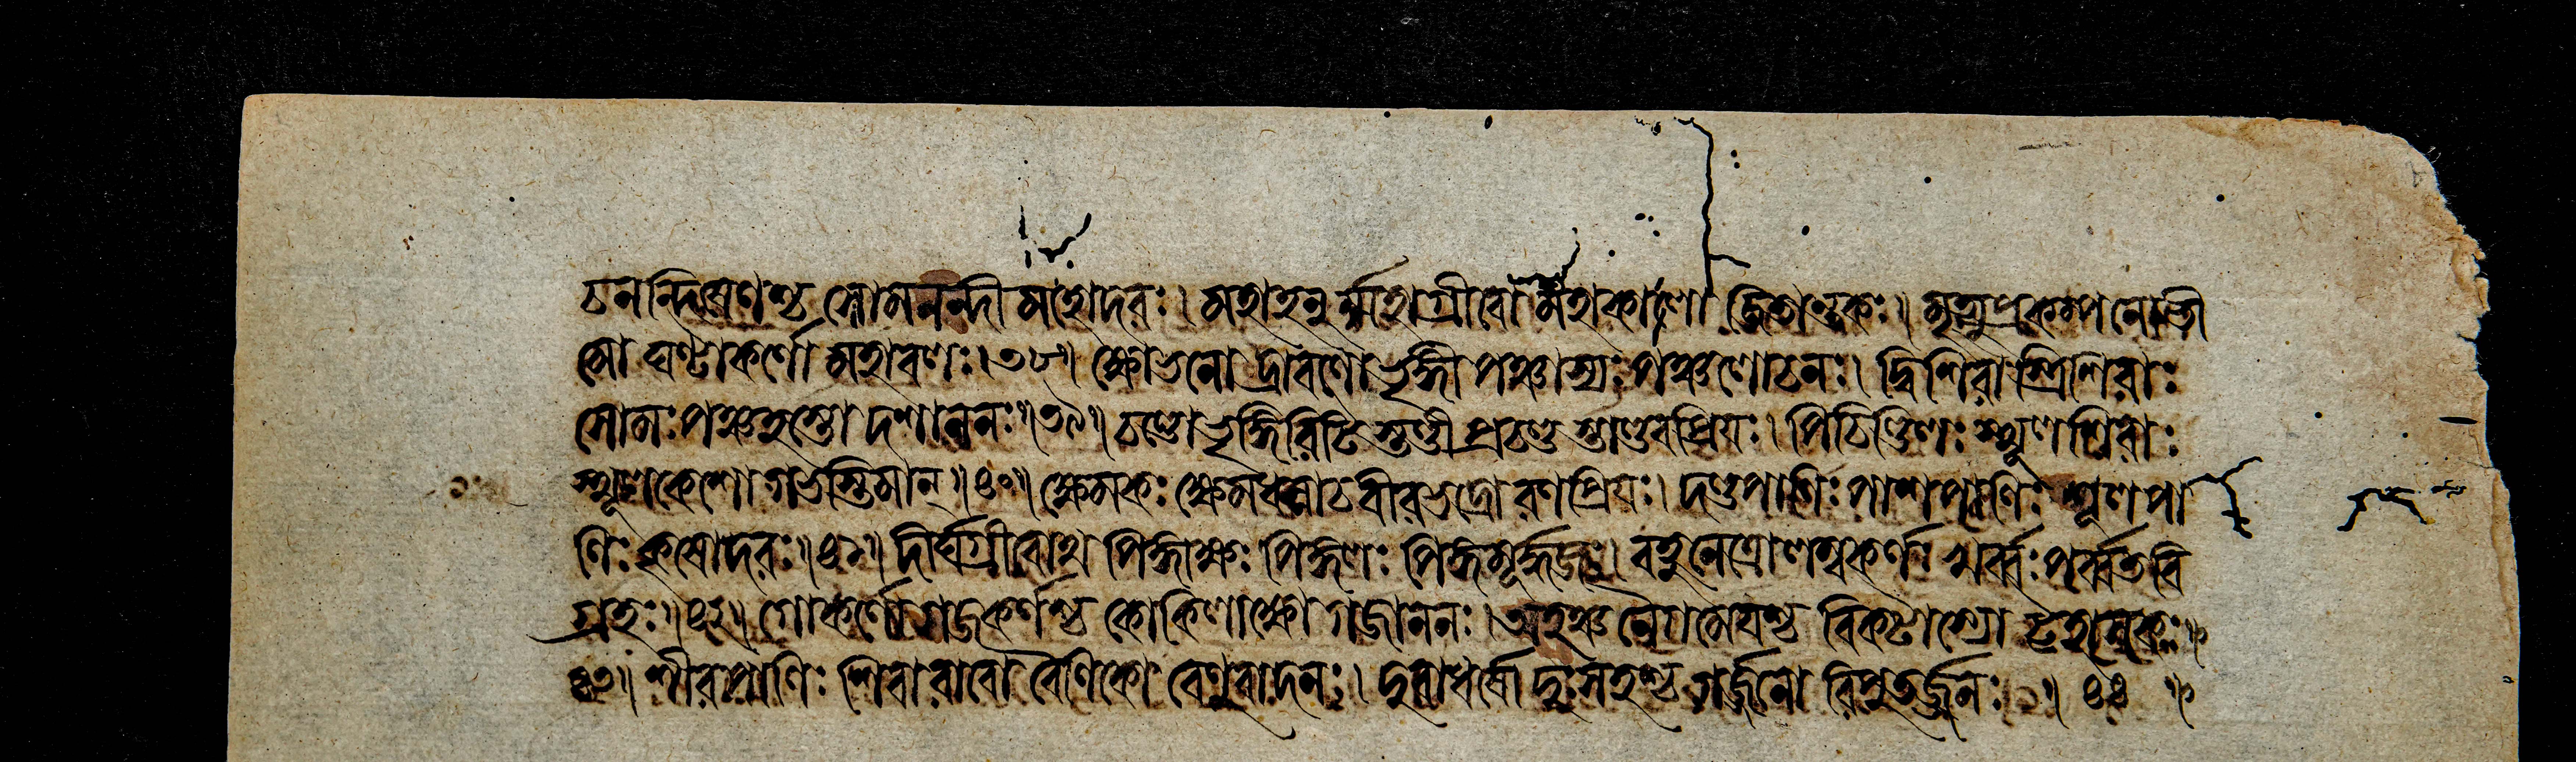 চনন্দিষেণশ্চ সোমনন্দী মহোদরঃ। মহাহনুর্ম্মহাগ্রীবো মহাকালো জিতান্তকঃ॥ মৃত্যুপ্রকম্পনো ভী
মো ঘণ্টাকর্ণো মহাবলঃ। ৩৮॥ ক্ষোভনো দ্রাবণো জৃম্ভী পঞ্চাস্যঃ পঞ্চলোচনঃ। দ্বিশিরাস্ত্রিশিরাঃ
সোমঃ পঞ্চহস্তো দশাননঃ॥ ৩৯॥ চণ্ডো ভৃঙ্গিরিটিস্তুণ্ডী প্রচণ্ডস্তাণ্ডবপ্রিয়ঃ। পিচিণ্ডিলঃ স্থূলশিরাঃ
স্থূলকেশো গভস্তিমান্॥ ৪০॥ ক্ষেমকঃ ক্ষেমধন্বা চ বীরভদ্রো রণপ্রিয়ঃ। দণ্ডপাণিঃ পাশপাণিঃ শূলপা
ণিঃ কৃষোদরঃ॥ ৪১॥ দীর্ঘগ্রীবোথ পিঙ্গাক্ষঃ পিঙ্গলঃ পিঙ্গমূর্দ্ধজঃ। বহুনেত্রো লম্বকর্ণঃ খর্ব্বঃ পর্ব্বতবি
গ্রহঃ॥ ৪২॥ গোকর্ণো গজকর্ণশ্চ কোকিলাক্ষো গজাননঃ। অহঞ্চ নৈগমেয়শ্চ বিকটাস্যো ট্টহাসকঃ॥
৪৩॥ শীরপাণিঃ শিবারাবো বৈণিকো বেণুবাদনঃ। দুরাধর্ষো দুঃসহশ্চ গর্জ্জনো রিপুতর্জ্জনঃ॥ ৪৪॥